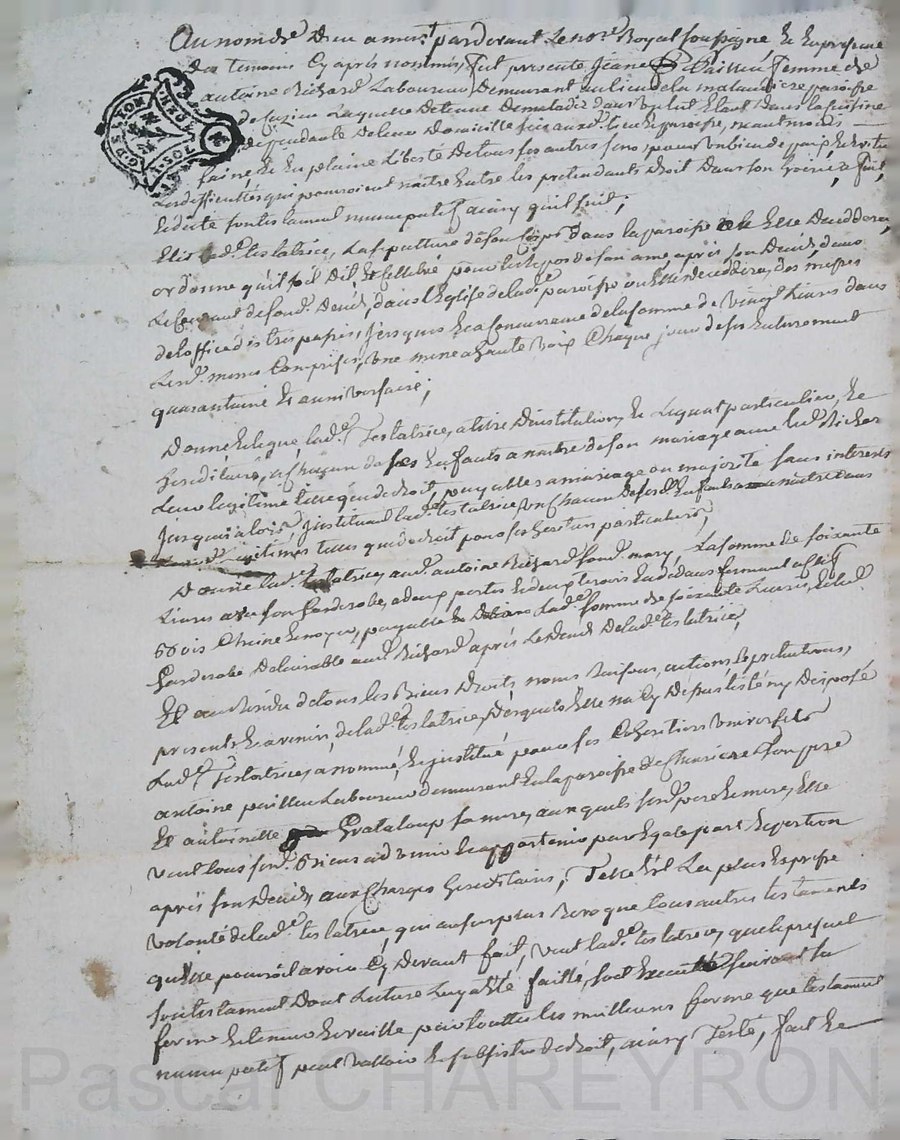 Au nom de Dieu amen, pardevant le no.re Royal soussigné et en presence
des temoins cy après nommés, fut presente Jeanne Pailleu femme de
antoine Richard Laboureur demeurant au lieu de la paroisse
de Laquelle detenue de maladie dans un lit Etant dans la cuisine
dependante de leur Domicille paroisse, neantmoins
saine, et En pleine Liberté de tous ses autres sens, pour un bien de paix et Eviter
Les difficultés qui pourroient naitre Entre les pretendants droit Dans son hoirie, a fait,
et dicté son testament nuncupatif ainsy qu'il suit;
Elit lad.e testatrice, La sepulture de son corps dans la paroisse ou Elle Decedera,
ordonne qu'il soit Dit, et Cellebré pour le repos de son ame après son Deces, dans
Le courant de sond. Deces, dans l'Eglise de lad.e paroisse ou Elle decedera, des messes
de l'office des trepassés, jusques à la concurrence de la somme de vingt Livres dans
Lesd. messes Comprises, une messe a haute voix Chaque jour de ses Enterrement
quarantaine et anniversaire;
Donne et legue lad.e Testatrice, a titre D'institution, et Leguat particulier, et
hereditaire, a Chacun de ses Enfants a naitre de son mariage avec led. Richard
Leur legitime telle que de droit, payable a mariage ou majorité sans interets
jusqu'alors, instituant lad.e testatrice un Chacun desd. Enfants a naitre dans
legitimes telle que de droit pour ses heritiers particuliers;
Donne lad.e testatrice, aud. antoine Richard sond. mary, La somme de soixante
Livres avec son Garderobe, a deux portes et deux tiroirs En dedans fermant a clef
bois Chene et noyer, payable Lad.e somme de soixante Livres, et led.
Garderobe Delivrable aud. Richard après Le Deces de lad.e testatrice,
Et au Residu de tous les Biens Droits, noms Raisons, actions, et pretentions,
presents et avenir, de lad.e testatrice, Desquels Elle n'a cy Dessus testé ny Disposé
Lad.e Testatrice, a nommé, et institué pour ses Coheritiers universels
antoine pailleu Laboureur demeurant En la paroisse de Son pere
Et antoinette Grataloup sa mere, auxquels sesd. pere et mere, Elle
veut tous sesd. biens advenir et appartenir par Egale part et portion
après son deces, aux Charges hereditaires; Telle Est La plus Expresse
volonté de lad.e testatrice, qui au surplus Revoque tous autres testaments
qu'Elle pourroit avoir Cy devant fait, veut lad.e testatrice, que le present
son testament Dont Lecture Luy a été faitte, soit Executé suivant sa
forme et teneur et vaille par touttes les meilleures forme que testament
nuncupatif peut valloir et subsister de droit, ainsy Testé, fait et
Pascal CHAREYRON